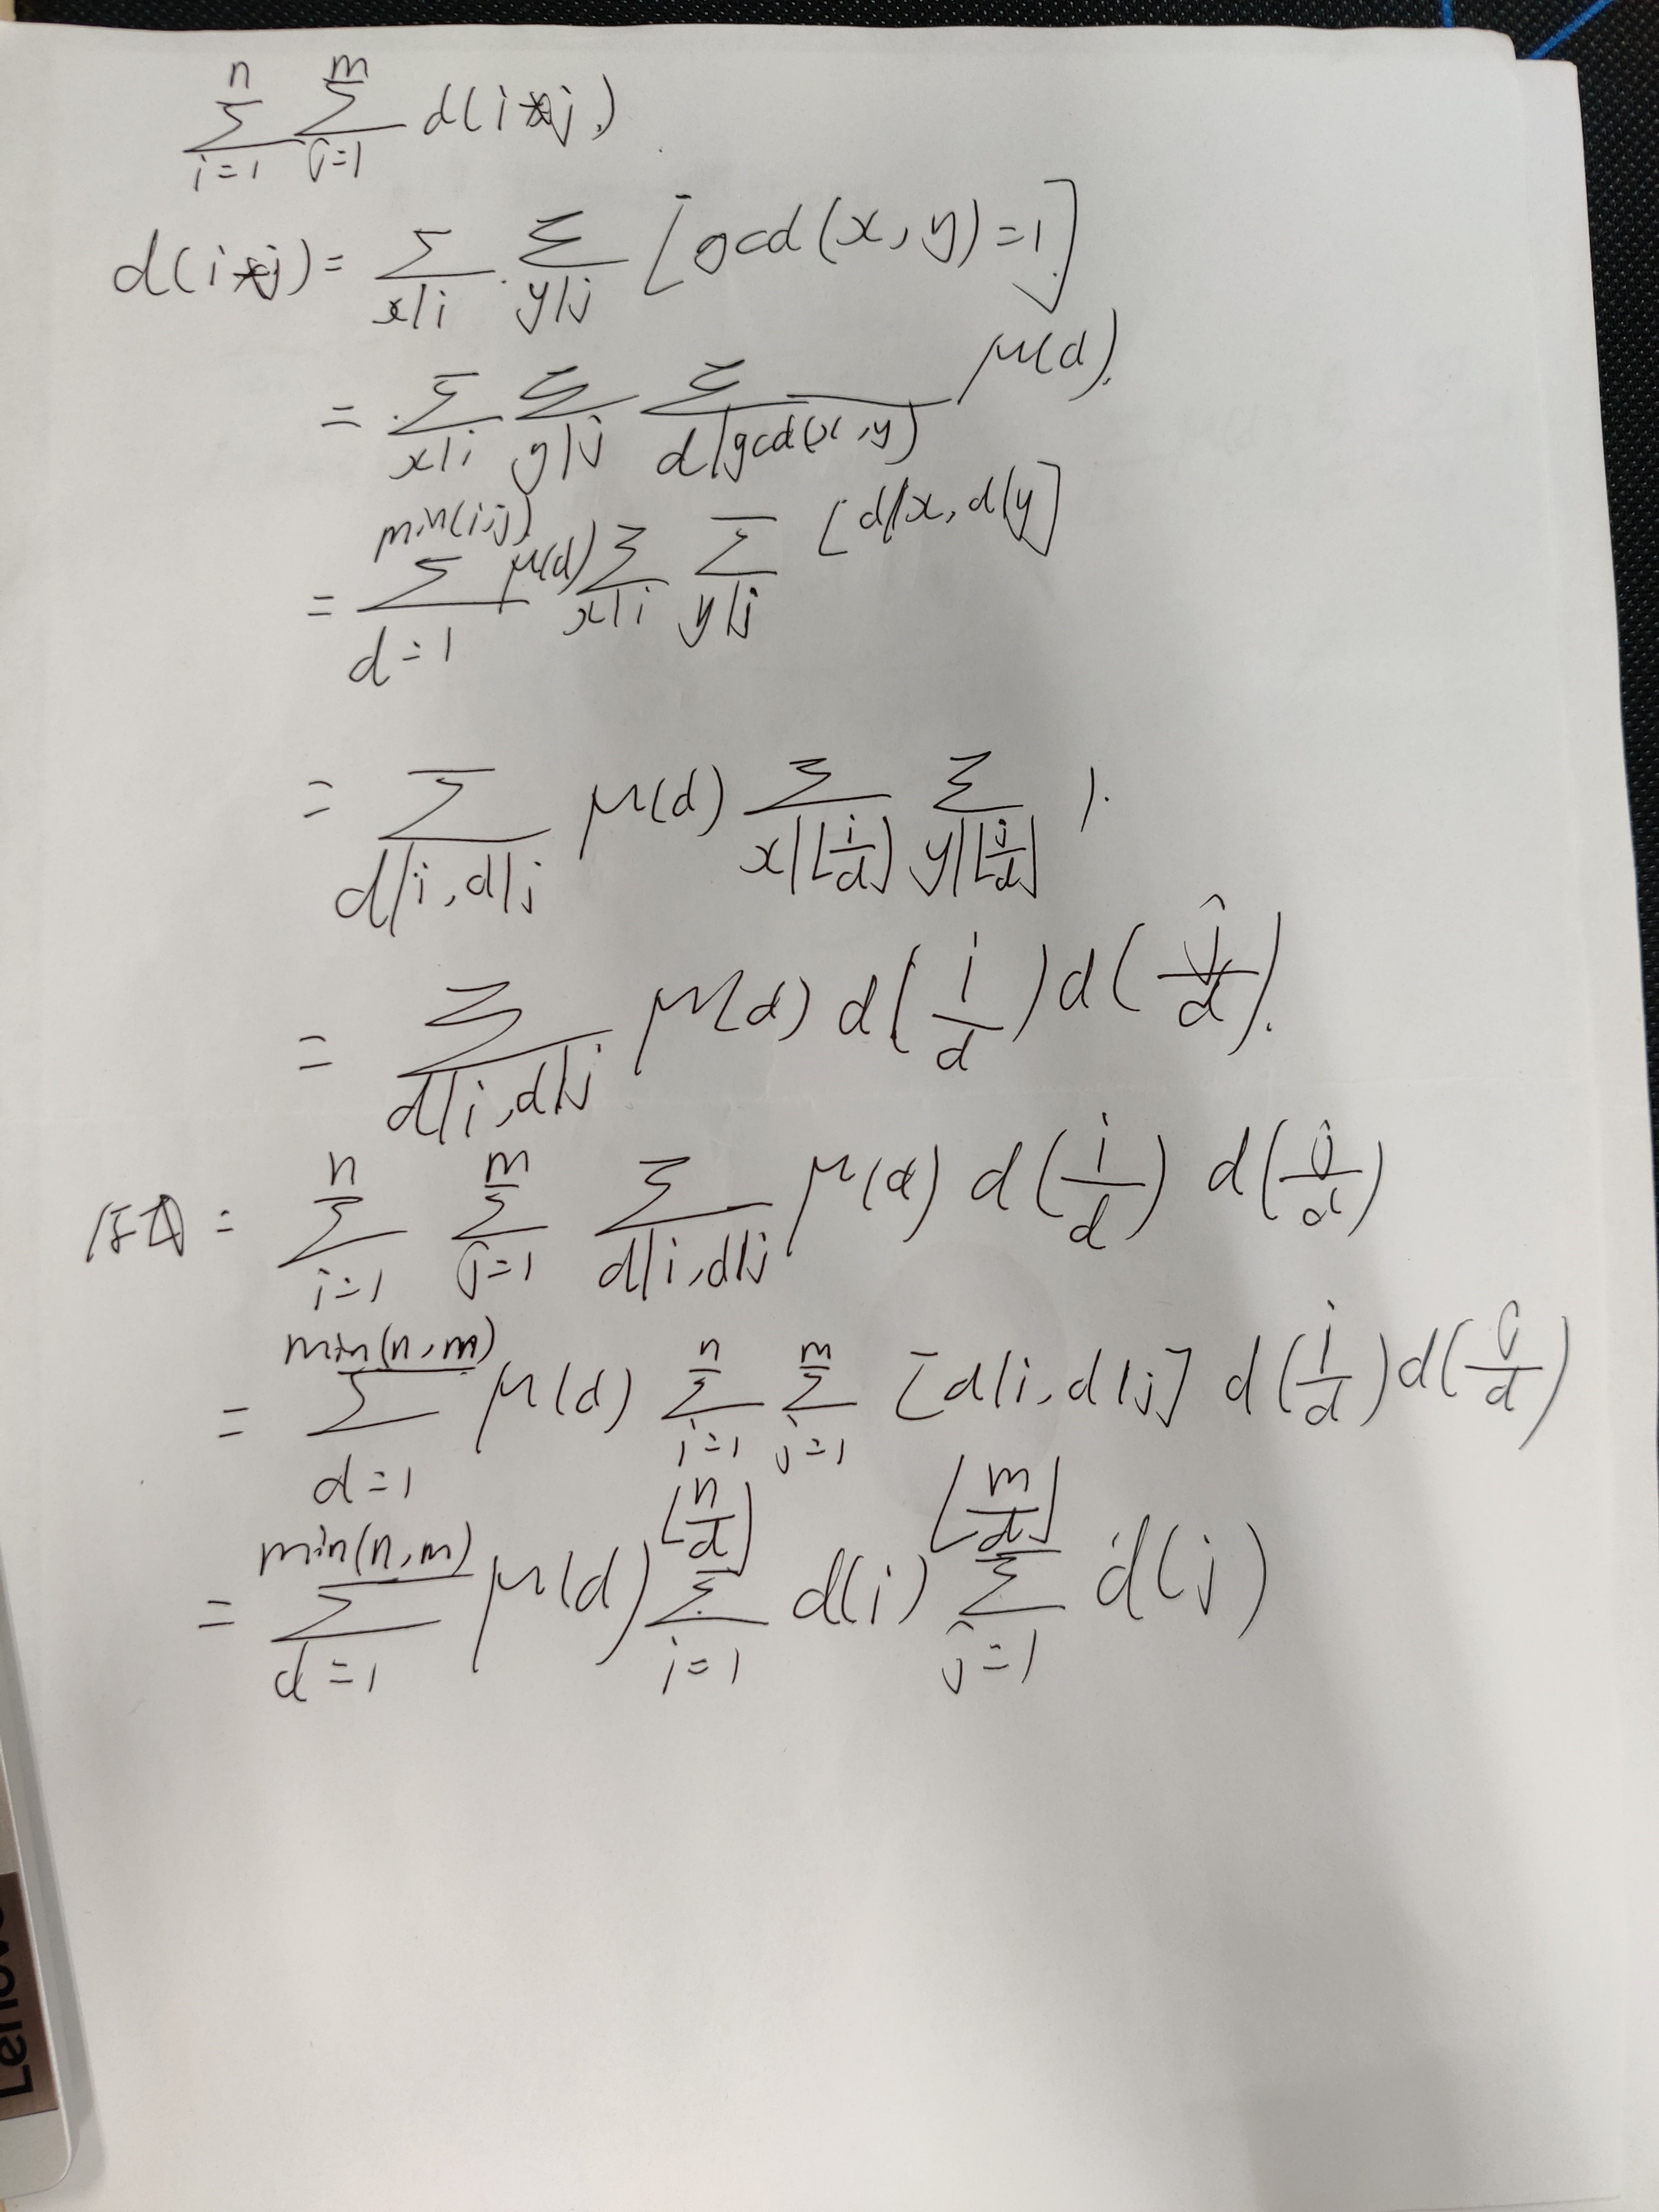 $\sum_{i=1}^{n} \sum_{j=1}^{m} d(i*j)$
$d(i*j) = \sum_{x|i} \sum_{y|j} [gcd(x,y)=1]$
$= \sum_{x|i} \sum_{y|j} \sum_{d|gcd(x,y)} \mu(d)$
$= \sum_{d=1}^{min(i,j)} \mu(d) \sum_{x|i} \sum_{y|j} [d|x, d|y]$
$= \sum_{d|i,d|j} \mu(d) \sum_{x|\lfloor \frac{i}{d} \rfloor} \sum_{y|\lfloor \frac{j}{d} \rfloor} 1$
$= \sum_{d|i,d|j} \mu(d) d(\frac{i}{d}) d(\frac{j}{d})$
原式 $= \sum_{i=1}^{n} \sum_{j=1}^{m} \sum_{d|i,d|j} \mu(d) d(\frac{i}{d}) d(\frac{j}{d})$
$= \sum_{d=1}^{min(n,m)} \mu(d) \sum_{i=1}^{n} \sum_{j=1}^{m} [d|i, d|j] d(\frac{i}{d}) d(\frac{j}{d})$
$= \sum_{d=1}^{min(n,m)} \mu(d) \sum_{i=1}^{\lfloor \frac{n}{d} \rfloor} d(i) \sum_{j=1}^{\lfloor \frac{m}{d} \rfloor} d(j)$
Lenovo